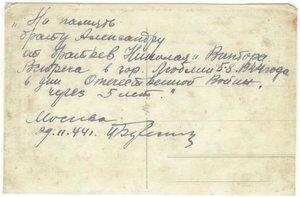 "На память
брату Александру
от братьев Николая и Виктора
Встреча в гор. Люблин 5.8.1944 года
в дни Отечественной Войны,
через 5 лет."
Москва
29.11.44г.